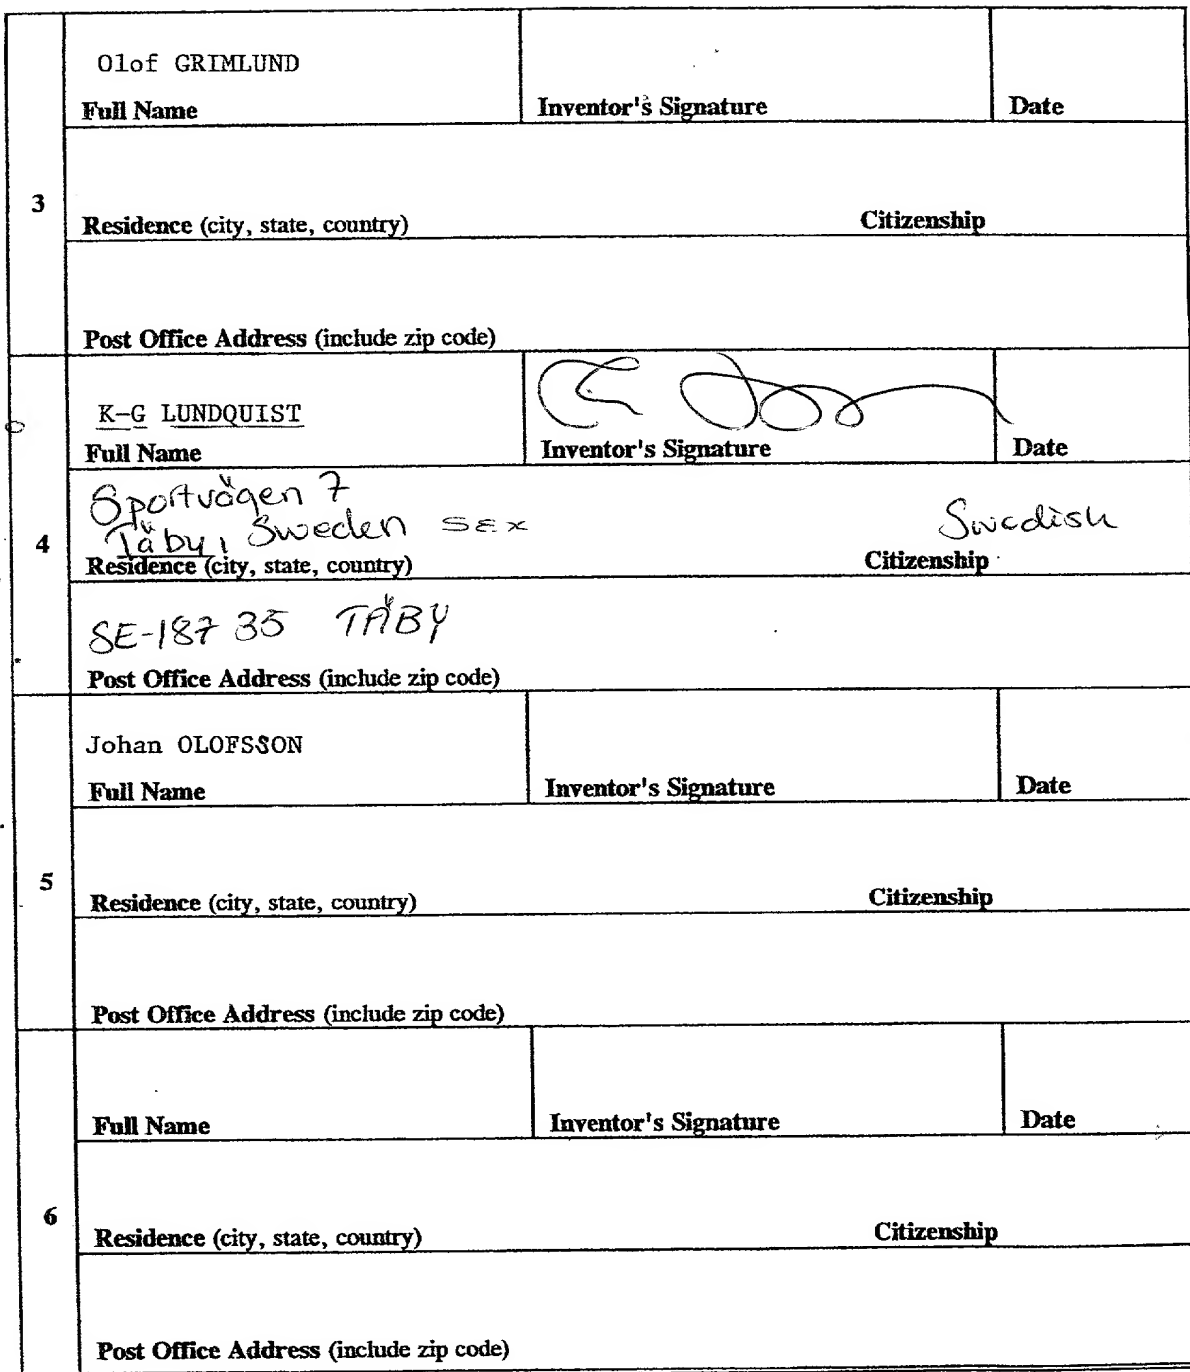 Olof GRIMLUND
Full Name Inventor's Signature Date
3
Residence (city, state, country) Citizenship
Post Office Address (include zip code)
K-G LUNDQUIST
Full Name Inventor's Signature Date
Sportvägen 7
Täby, Sweden SEX Swedish
4
Residence (city, state, country) Citizenship
SE-187 35 TÄBY
Post Office Address (include zip code)
Johan OLOFSSON
Full Name Inventor's Signature Date
5
Residence (city, state, country) Citizenship
Post Office Address (include zip code)
Full Name Inventor's Signature Date
6
Residence (city, state, country) Citizenship
Post Office Address (include zip code)